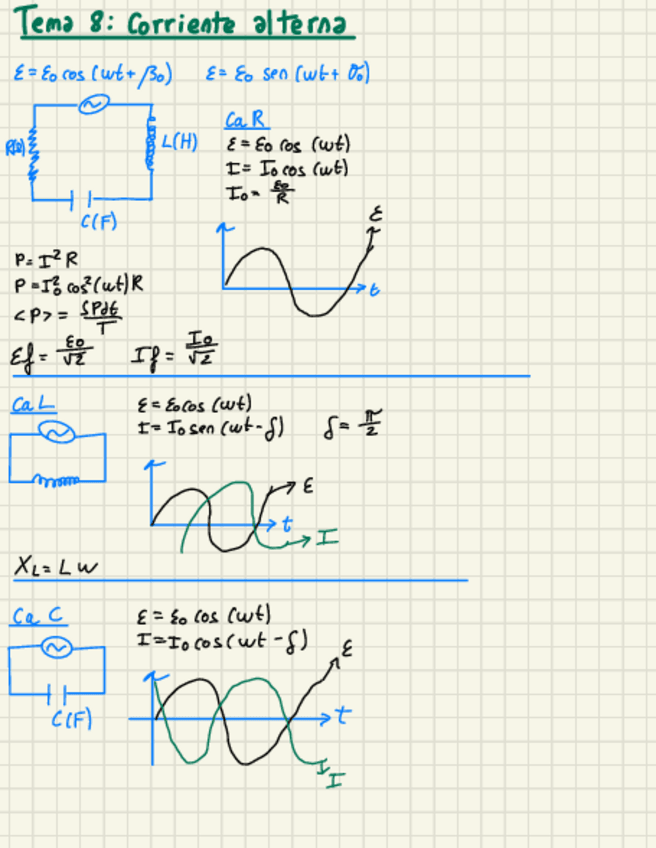 Tema 8: Corriente alterna
ε = ε₀ cos (ωt + β₀)    ε = ε₀ sen (ωt + θ₀)
R(Ω)
L(H)
C(F)
Ca R
ε = ε₀ cos (ωt)
I = I₀ cos (ωt)
I₀ = ε₀/R
ε
t
P = I² R
P = I₀² cos² (ωt) R
<P> = ∫Pdt/T
εf = ε₀/√2    If = I₀/√2
Ca L
ε = ε₀ cos (ωt)
I = I₀ sen (ωt - δ)    δ = π/2
ε
t
I
X_L = L ω
Ca C
ε = ε₀ cos (ωt)
I = I₀ cos (ωt - δ)
C(F)
ε
t
I